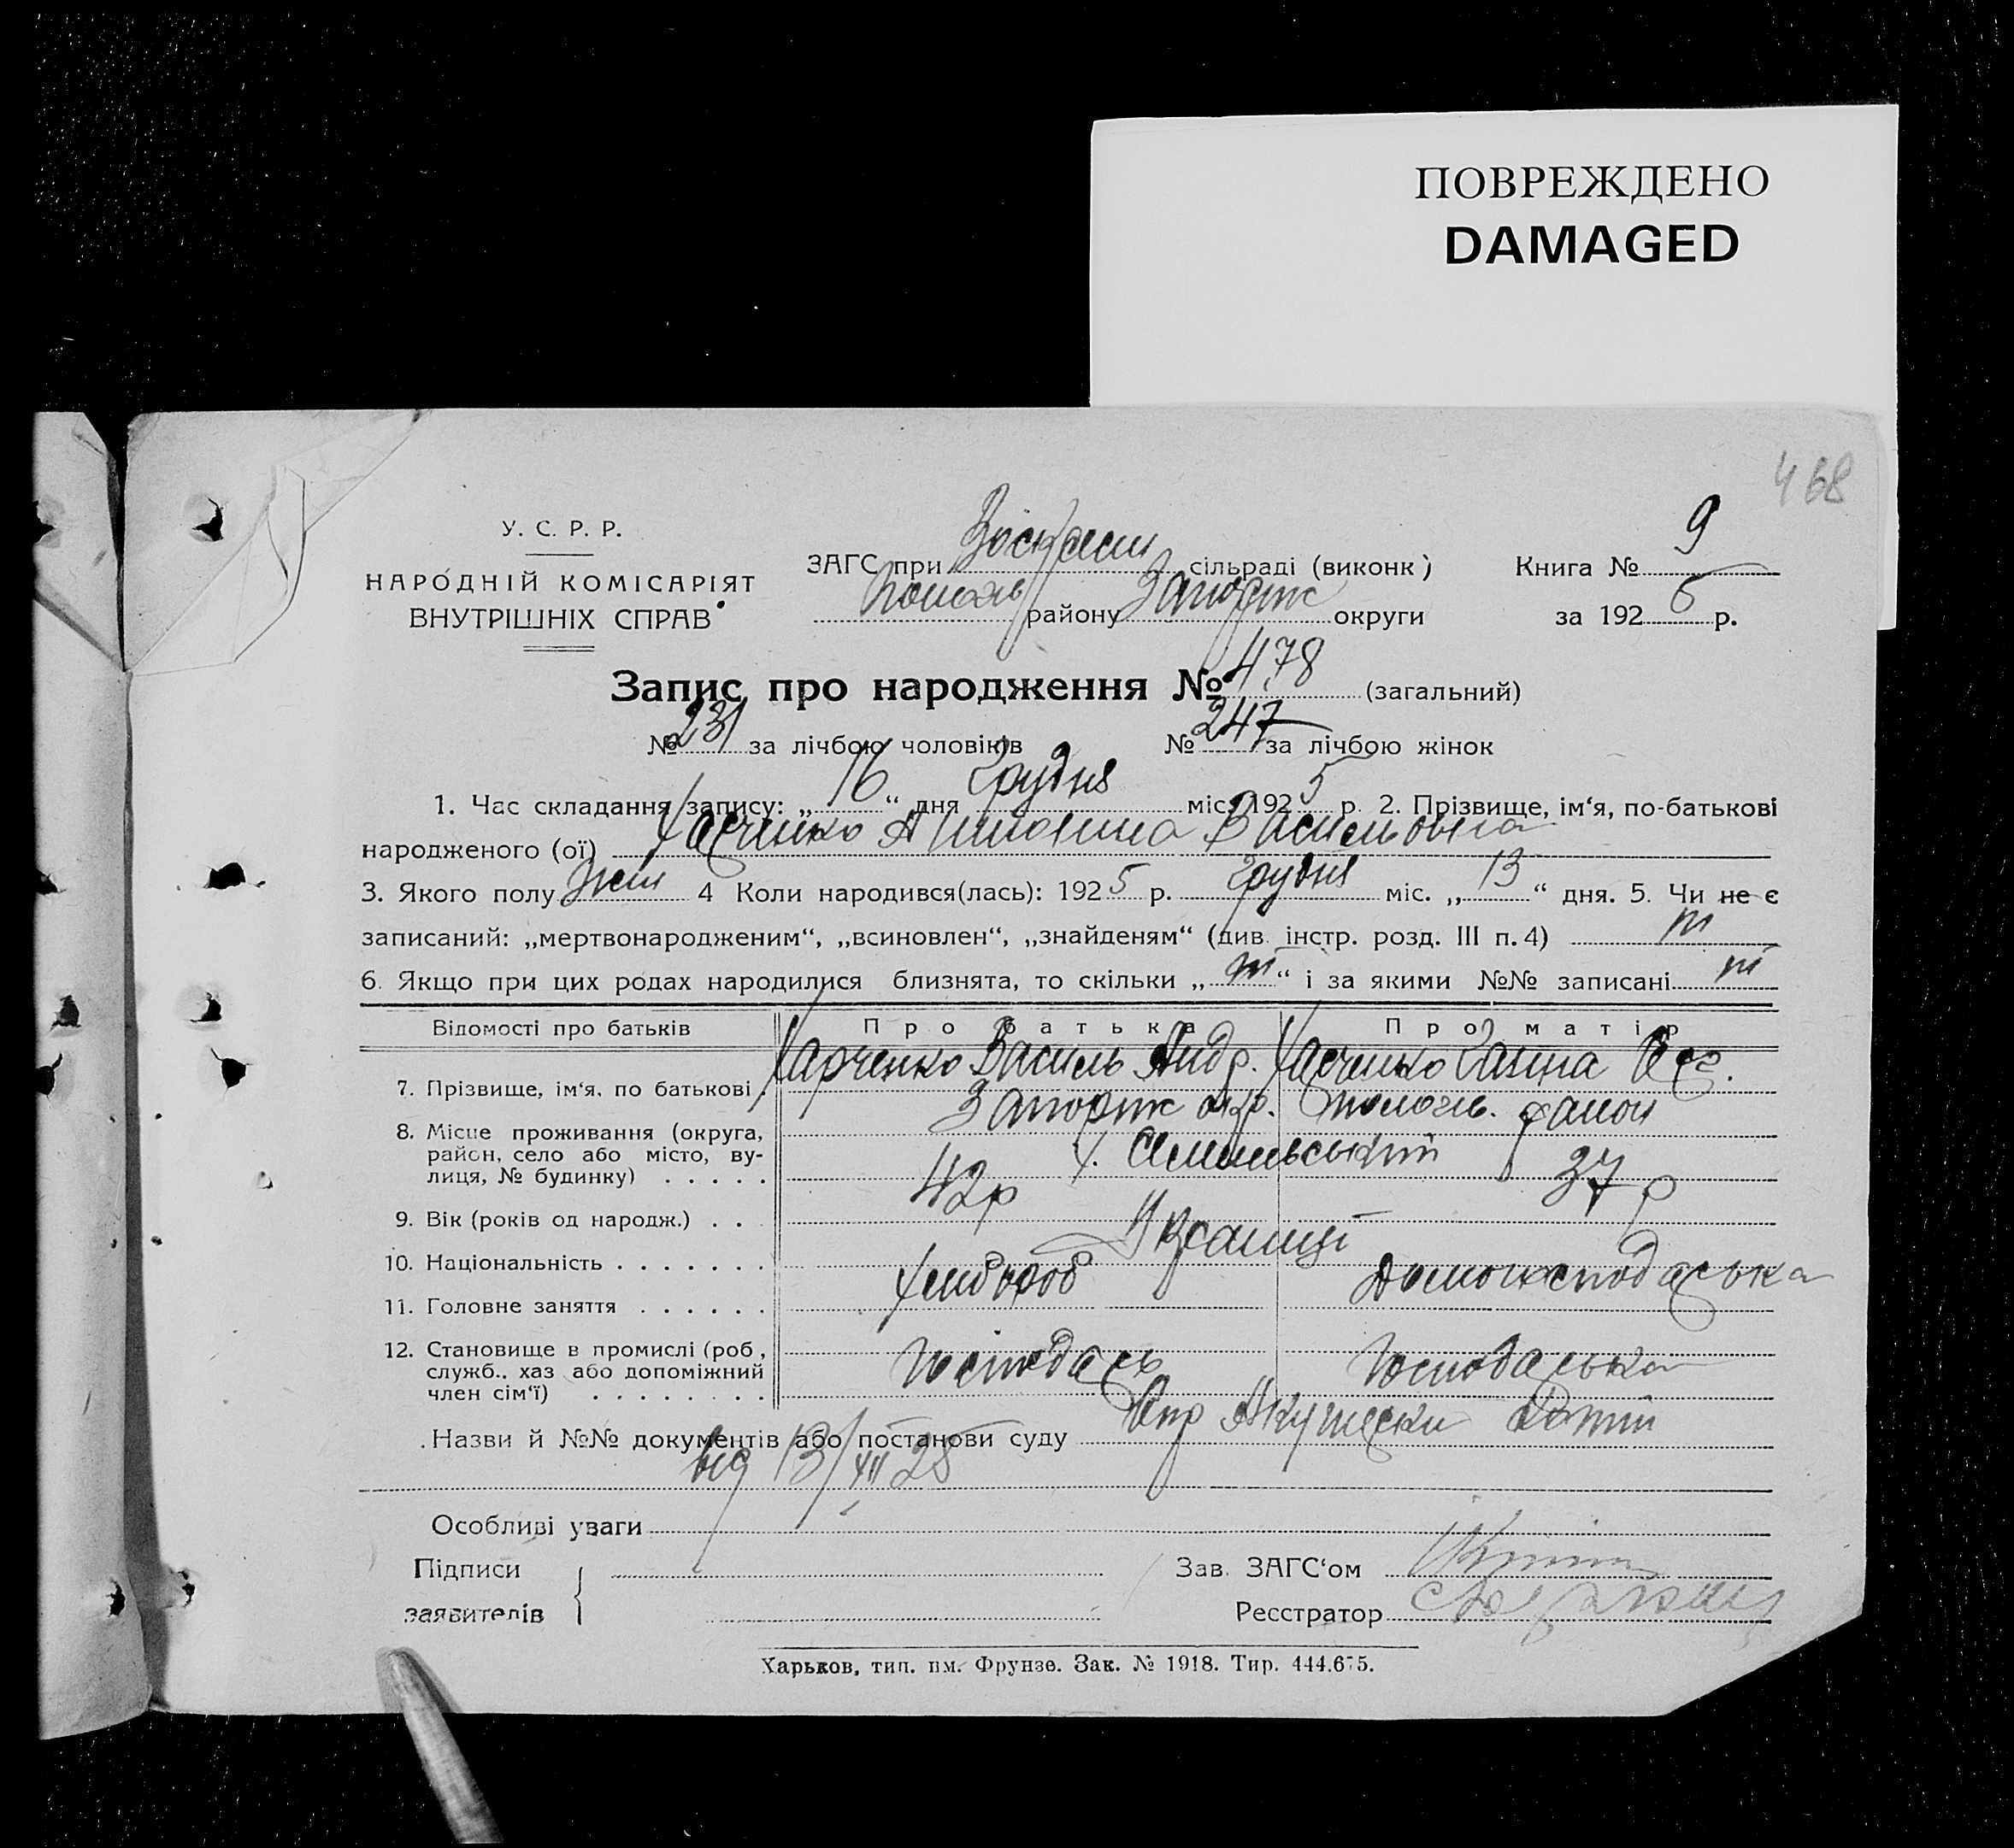 ПОВРЕЖДЕНО
DAMAGED
468
У. С. Р. Р.
НАРОДНІЙ КОМІСАРІЯТ
ВНУТРІШНІХ СПРАВ
ЗАГС при сільраді (виконк) Книга № 9
району Запоріж округи за 192 5 р.
Запис про народження № 478 (загальний)
№ 231 за лічбою чоловіків № 247 за лічбою жінок
1. Час складання запису: „ 16 “ дня Грудня міс. 192 5 р. 2. Прізвище, ім‘я, по-батькові
народженого (ої) Харченко Антонина Васильовна
3. Якого полу жін 4 Коли народився(лась): 192 5 р. Грудня міс. „ 13 “ дня. 5. Чи не є
записаний: „мертвонародженим“, „всиновлен“, „знайденям“ (див. інстр. розд. III п. 4) ні
6. Якщо при цих родах народилися близнята, то скільки „ ні “ і за якими №№ записані ні
Відомості про батьків Про батька Про матір
7. Прізвище, ім‘я, по батькові Харченко Василь Андр. Харченко Ганна
8. Місце проживання (округа, Запоріж окр. район
район, село або місто, ву-
лиця, № будинку) х.
9. Вік (років од народж.) 42 р 37 р
10. Національність Українці
11. Головне заняття Хлібороб Домогосподарська
12. Становище в промислі (роб.,
служб., хаз або допоміжний Господарь Господарька
член сім‘ї)
Назви й №№ документів або постанови суду Акушерки
від 13/XII 25
Особливі уваги
Підписи Зав. ЗАГС‘ом
заявителів Реєстратор
Харьков, тип. им. Фрунзе. Зак. № 1918. Тир. 444.675.